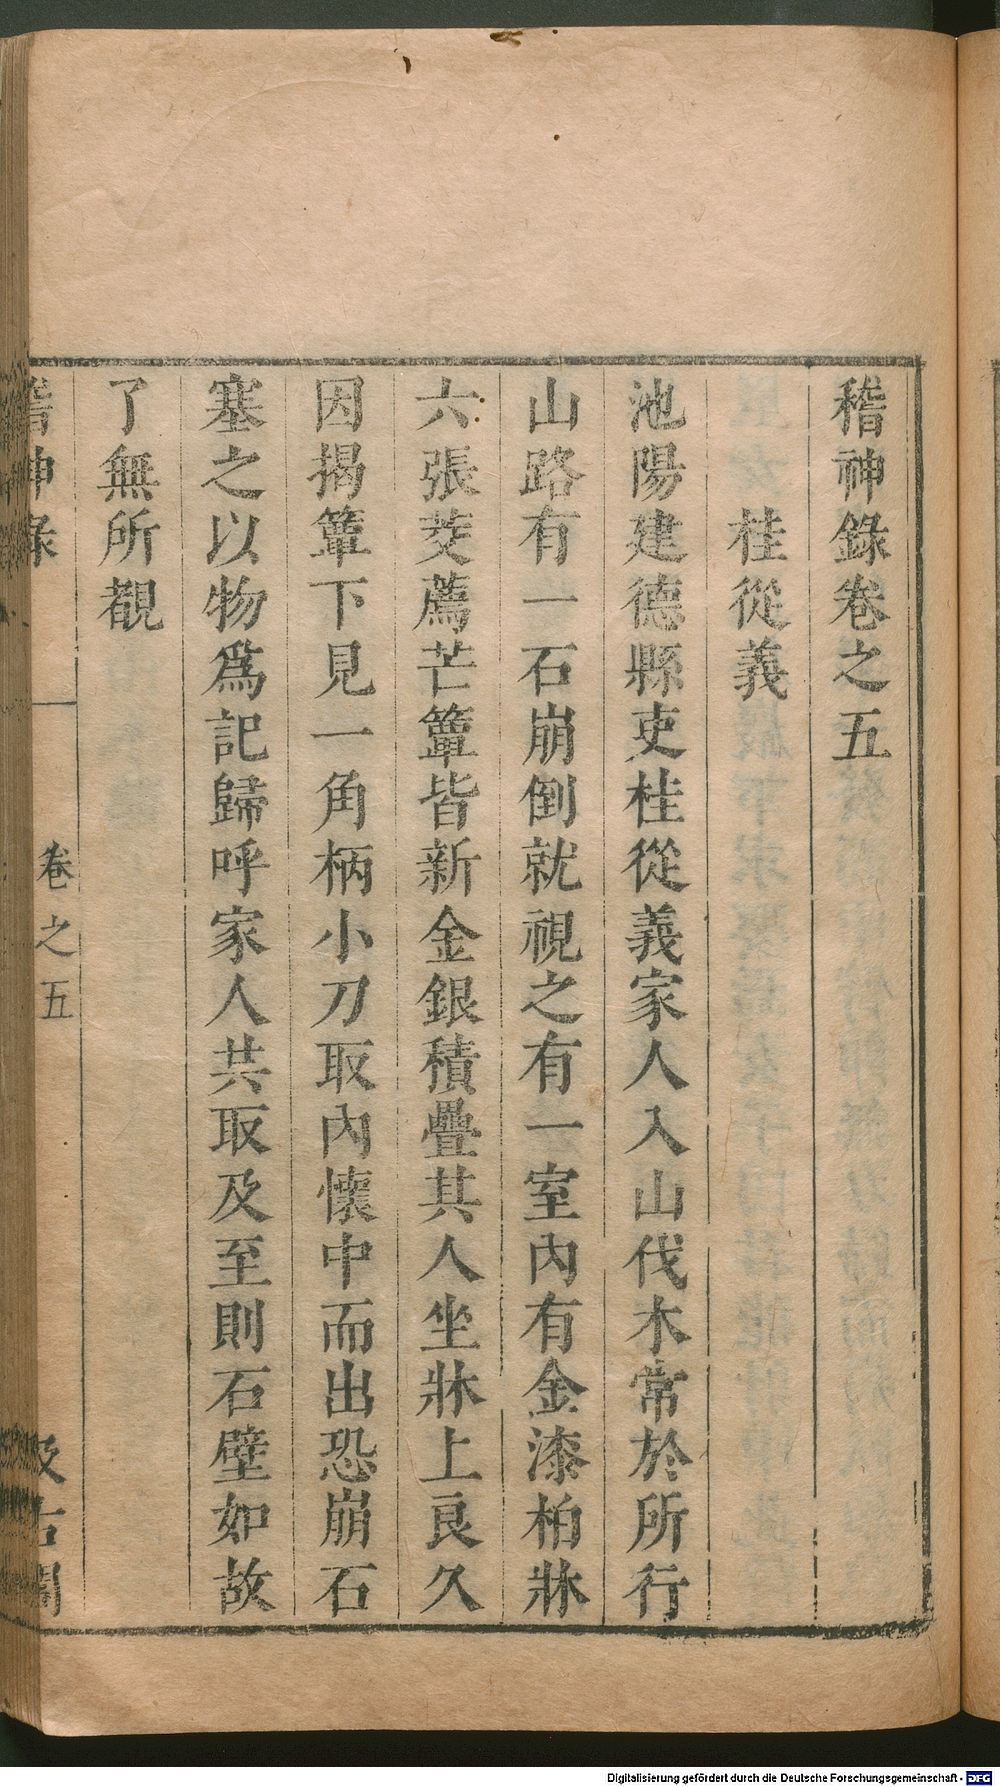 稽神錄卷之五
桂從義
池陽建德縣吏桂從義家人入山伐木常於所行
山路有一石崩倒就視之有一室內有金漆柏牀
六張茭薦芒簟皆新金銀積疊其人坐牀上良久
因揭簟下見一角柄小刀取內懷中而出恐崩石
塞之以物爲記歸呼家人共取及至則石壁如故
了無所覩
稽神錄 一 卷之五 汲古閣
Digitalisierung gefördert durch die Deutsche Forschungsgemeinschaft - DFG